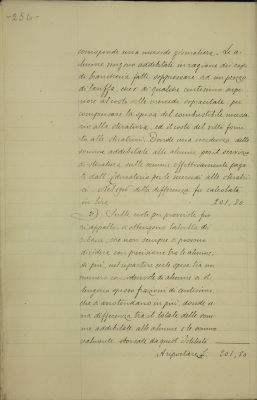 -256-
corrisponde una mercede giornaliera. Le a-
lunne vengono addebitate in ragione dei capi
di biancheria fatti soppressare, ad un prezzo
di tariffa, che è di qualche centesimo supe-
riore al costo delle mercede soprariferite, per
compensare la spesa del combustibile neces-
sario alla stiratura, ed il costo del
alle stiratrici. Donde una eccedenza delle
somme addebitate alle alunne per il servizio
di stiratura sulle somme effettivamente paga-
te dall'Educatorio per le mercede alle stiratri-
ci. Nel 1905 detta differenza fu calcolata
in lire 201,80
2) Sulle
di appalti, si ottengono talvolta di
che non sempre si possono
dividere con precisione tra le alunne;
di più, nel ripartire certe spese tra un
numero considerevole di alunne si ot-
tengono spesso frazioni di centesimo,
che si arrotondano in più, donde u-
na differenza tra il totale delle som-
me addebitate alle alunne e le somme
realmente sborsate da quest'Istituto
A riportare L. 201,80